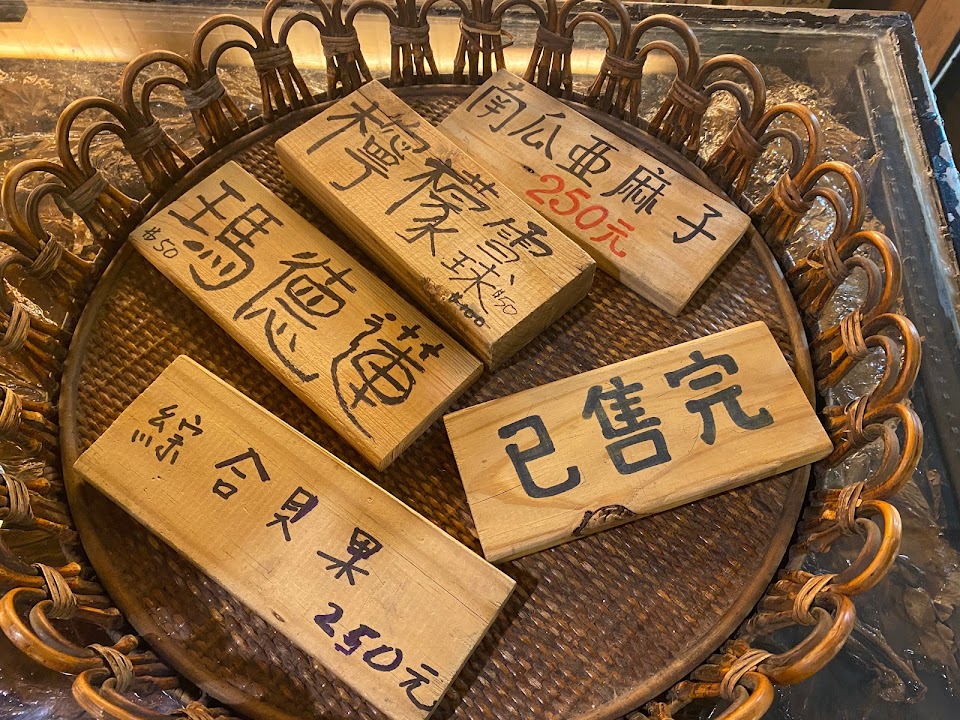 南瓜亞麻子
250元
檸檬雪球
$50
瑪德蓮
$50
已售完
綜合貝果
250元